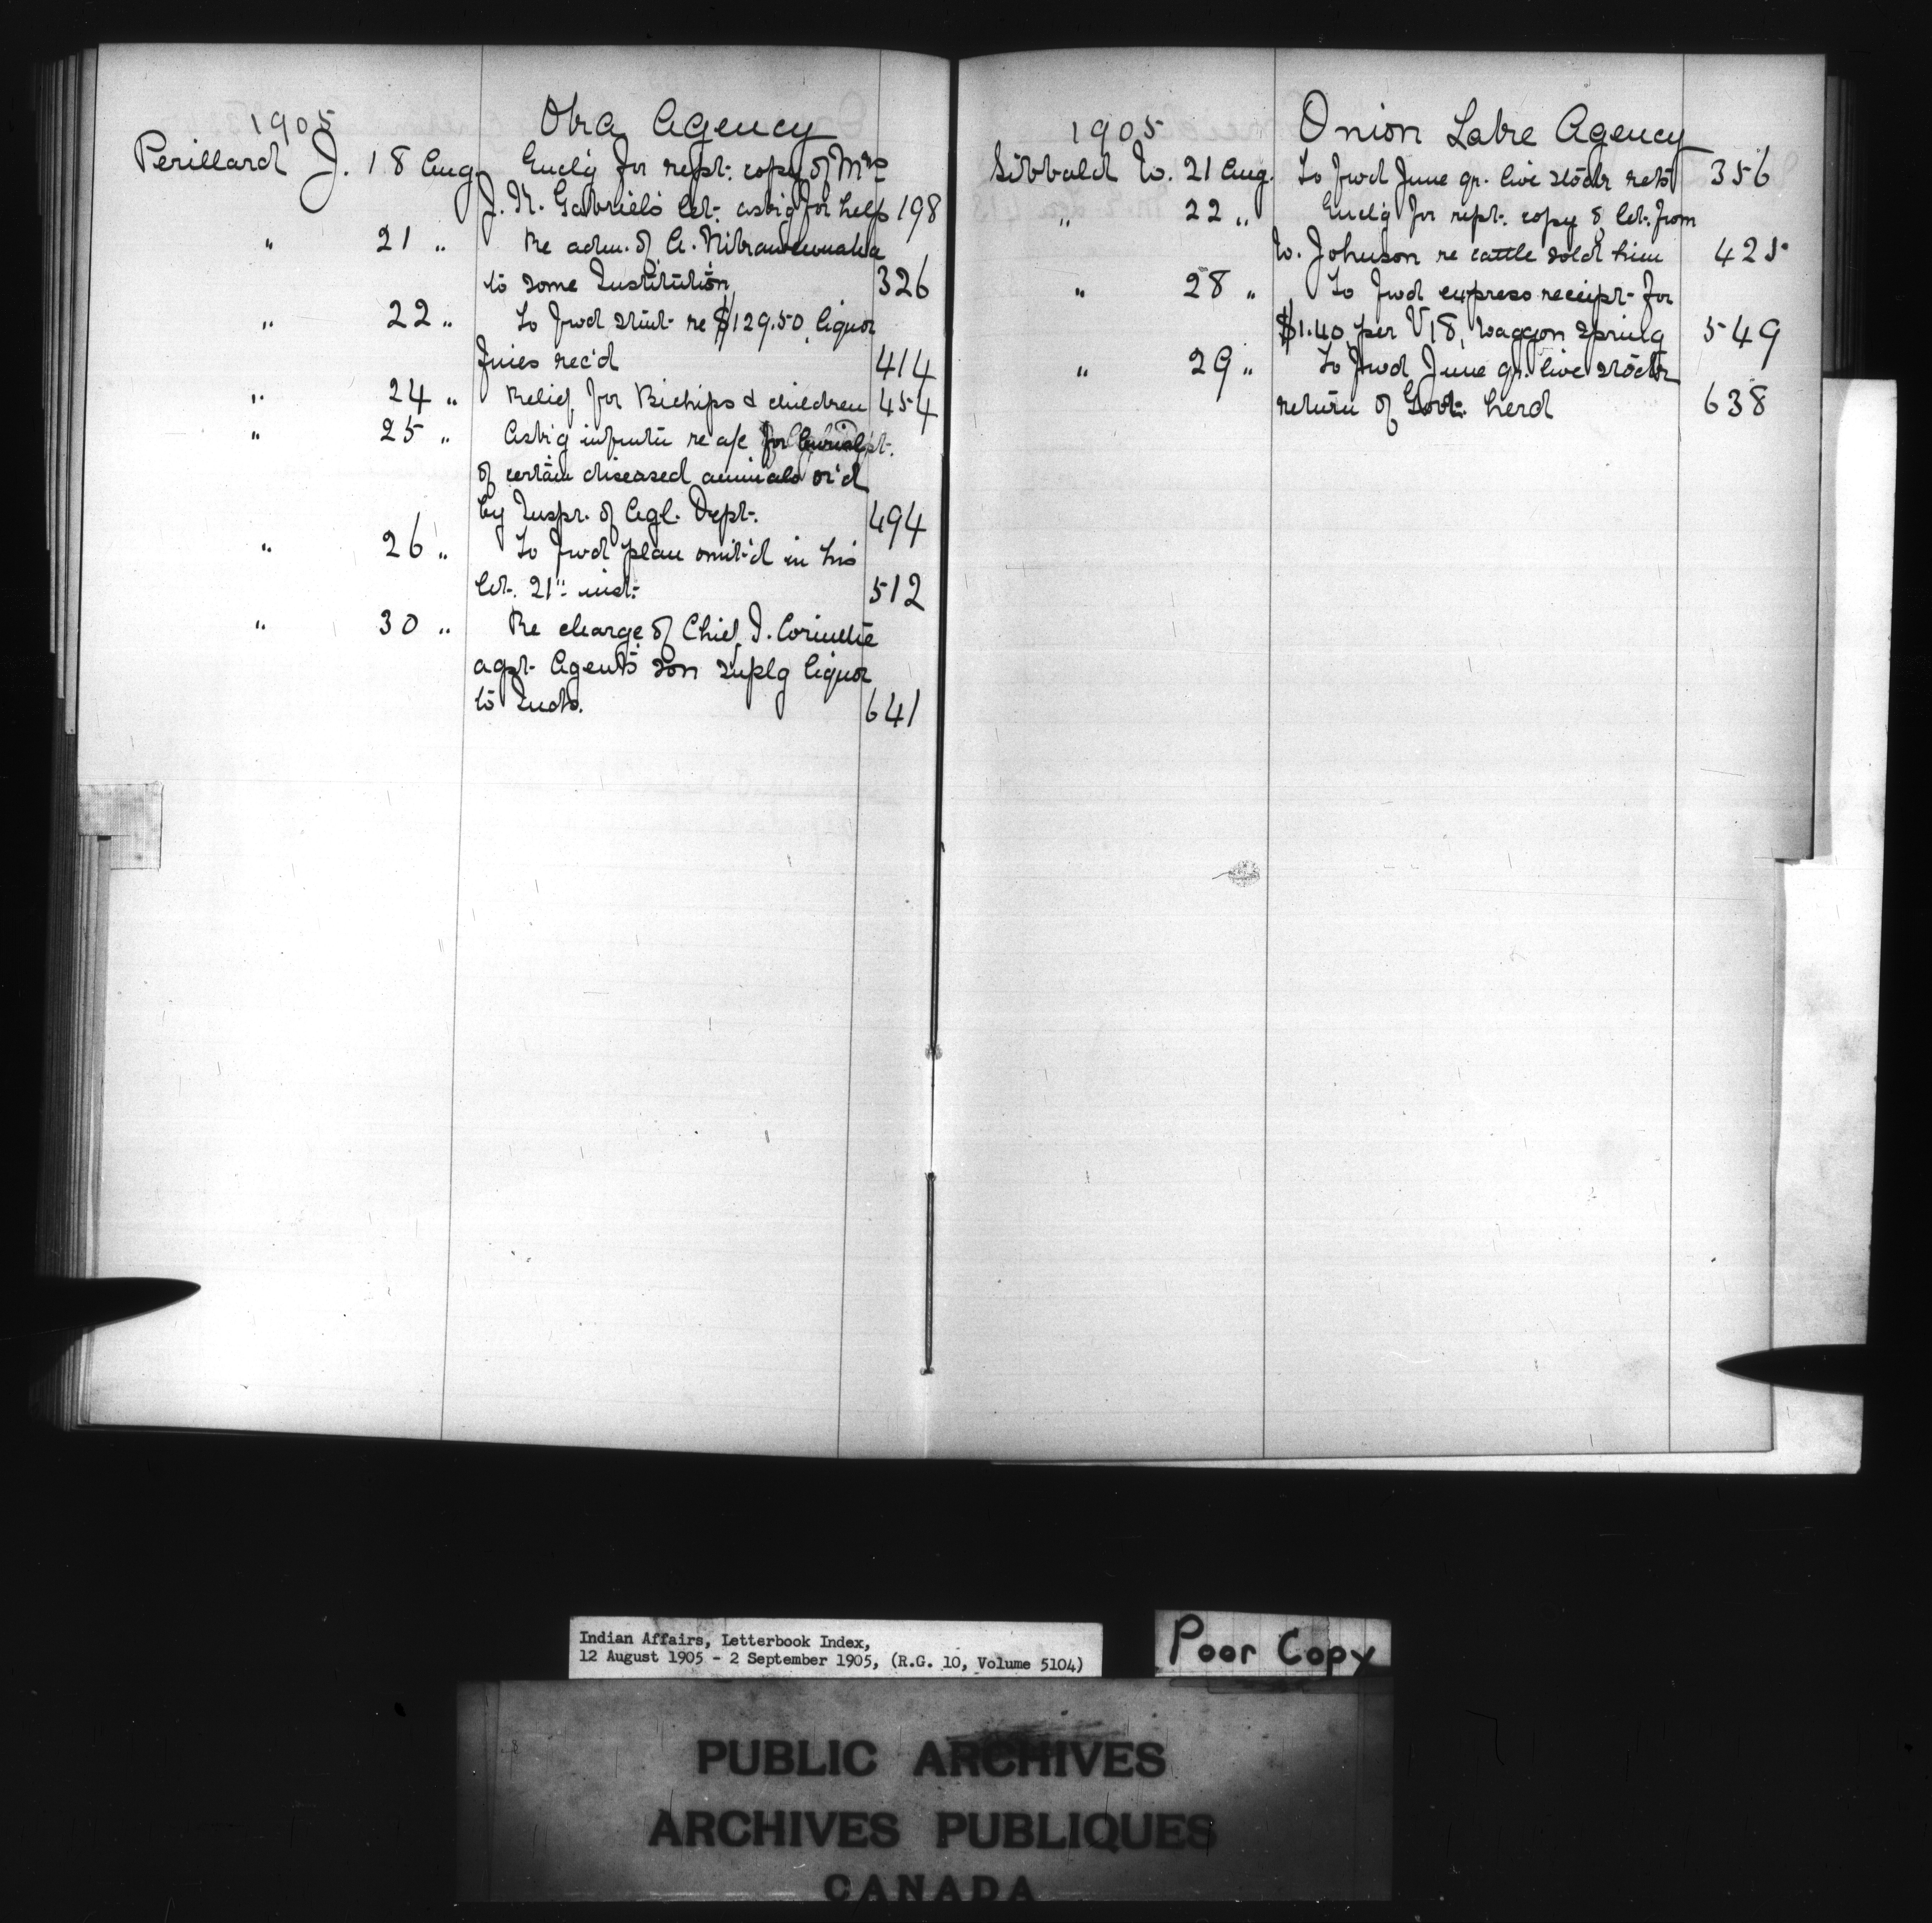 1905 Oka Agency
Perillard J. 18 Aug. Encl'g for rept. copy of Mrs
J. K. Gabriel's let. ask'g for help 198
" 21 " Re adm. of A.
to some Institution 326
" 22 " To fwd stmt re $129.50, liquor
fines rec'd 414
" 24 " Relief for Bichips & children 454
" 25 " Ask'g infmtn re a/c for
of certain diseased animals or'd
by Inspr. of Agl. Dept. 494
" 26 " To fwd plan omit'd in his
let. 21" inst. 512
" 30 " Re charge of Chief J. Corinthe
agst Agent's son suplg liquor
to Inds. 641
1905 Onion Lake Agency
Sibbald W. 21 Aug. To fwd June qr. live stock rets 356
" 22 " Encl'g for rept. copy of let. from
W. Johnson re cattle sold him 425
" 28 " To fwd express receipt for
$1.40 per V18, waggon spring 549
" 29 " To fwd June qr. live stock
return of Govt. herd 638
Indian Affairs, Letterbook Index,
12 August 1905 - 2 September 1905, (R.G. 10, Volume 5104)
Poor Copy
PUBLIC ARCHIVES
ARCHIVES PUBLIQUES
CANADA